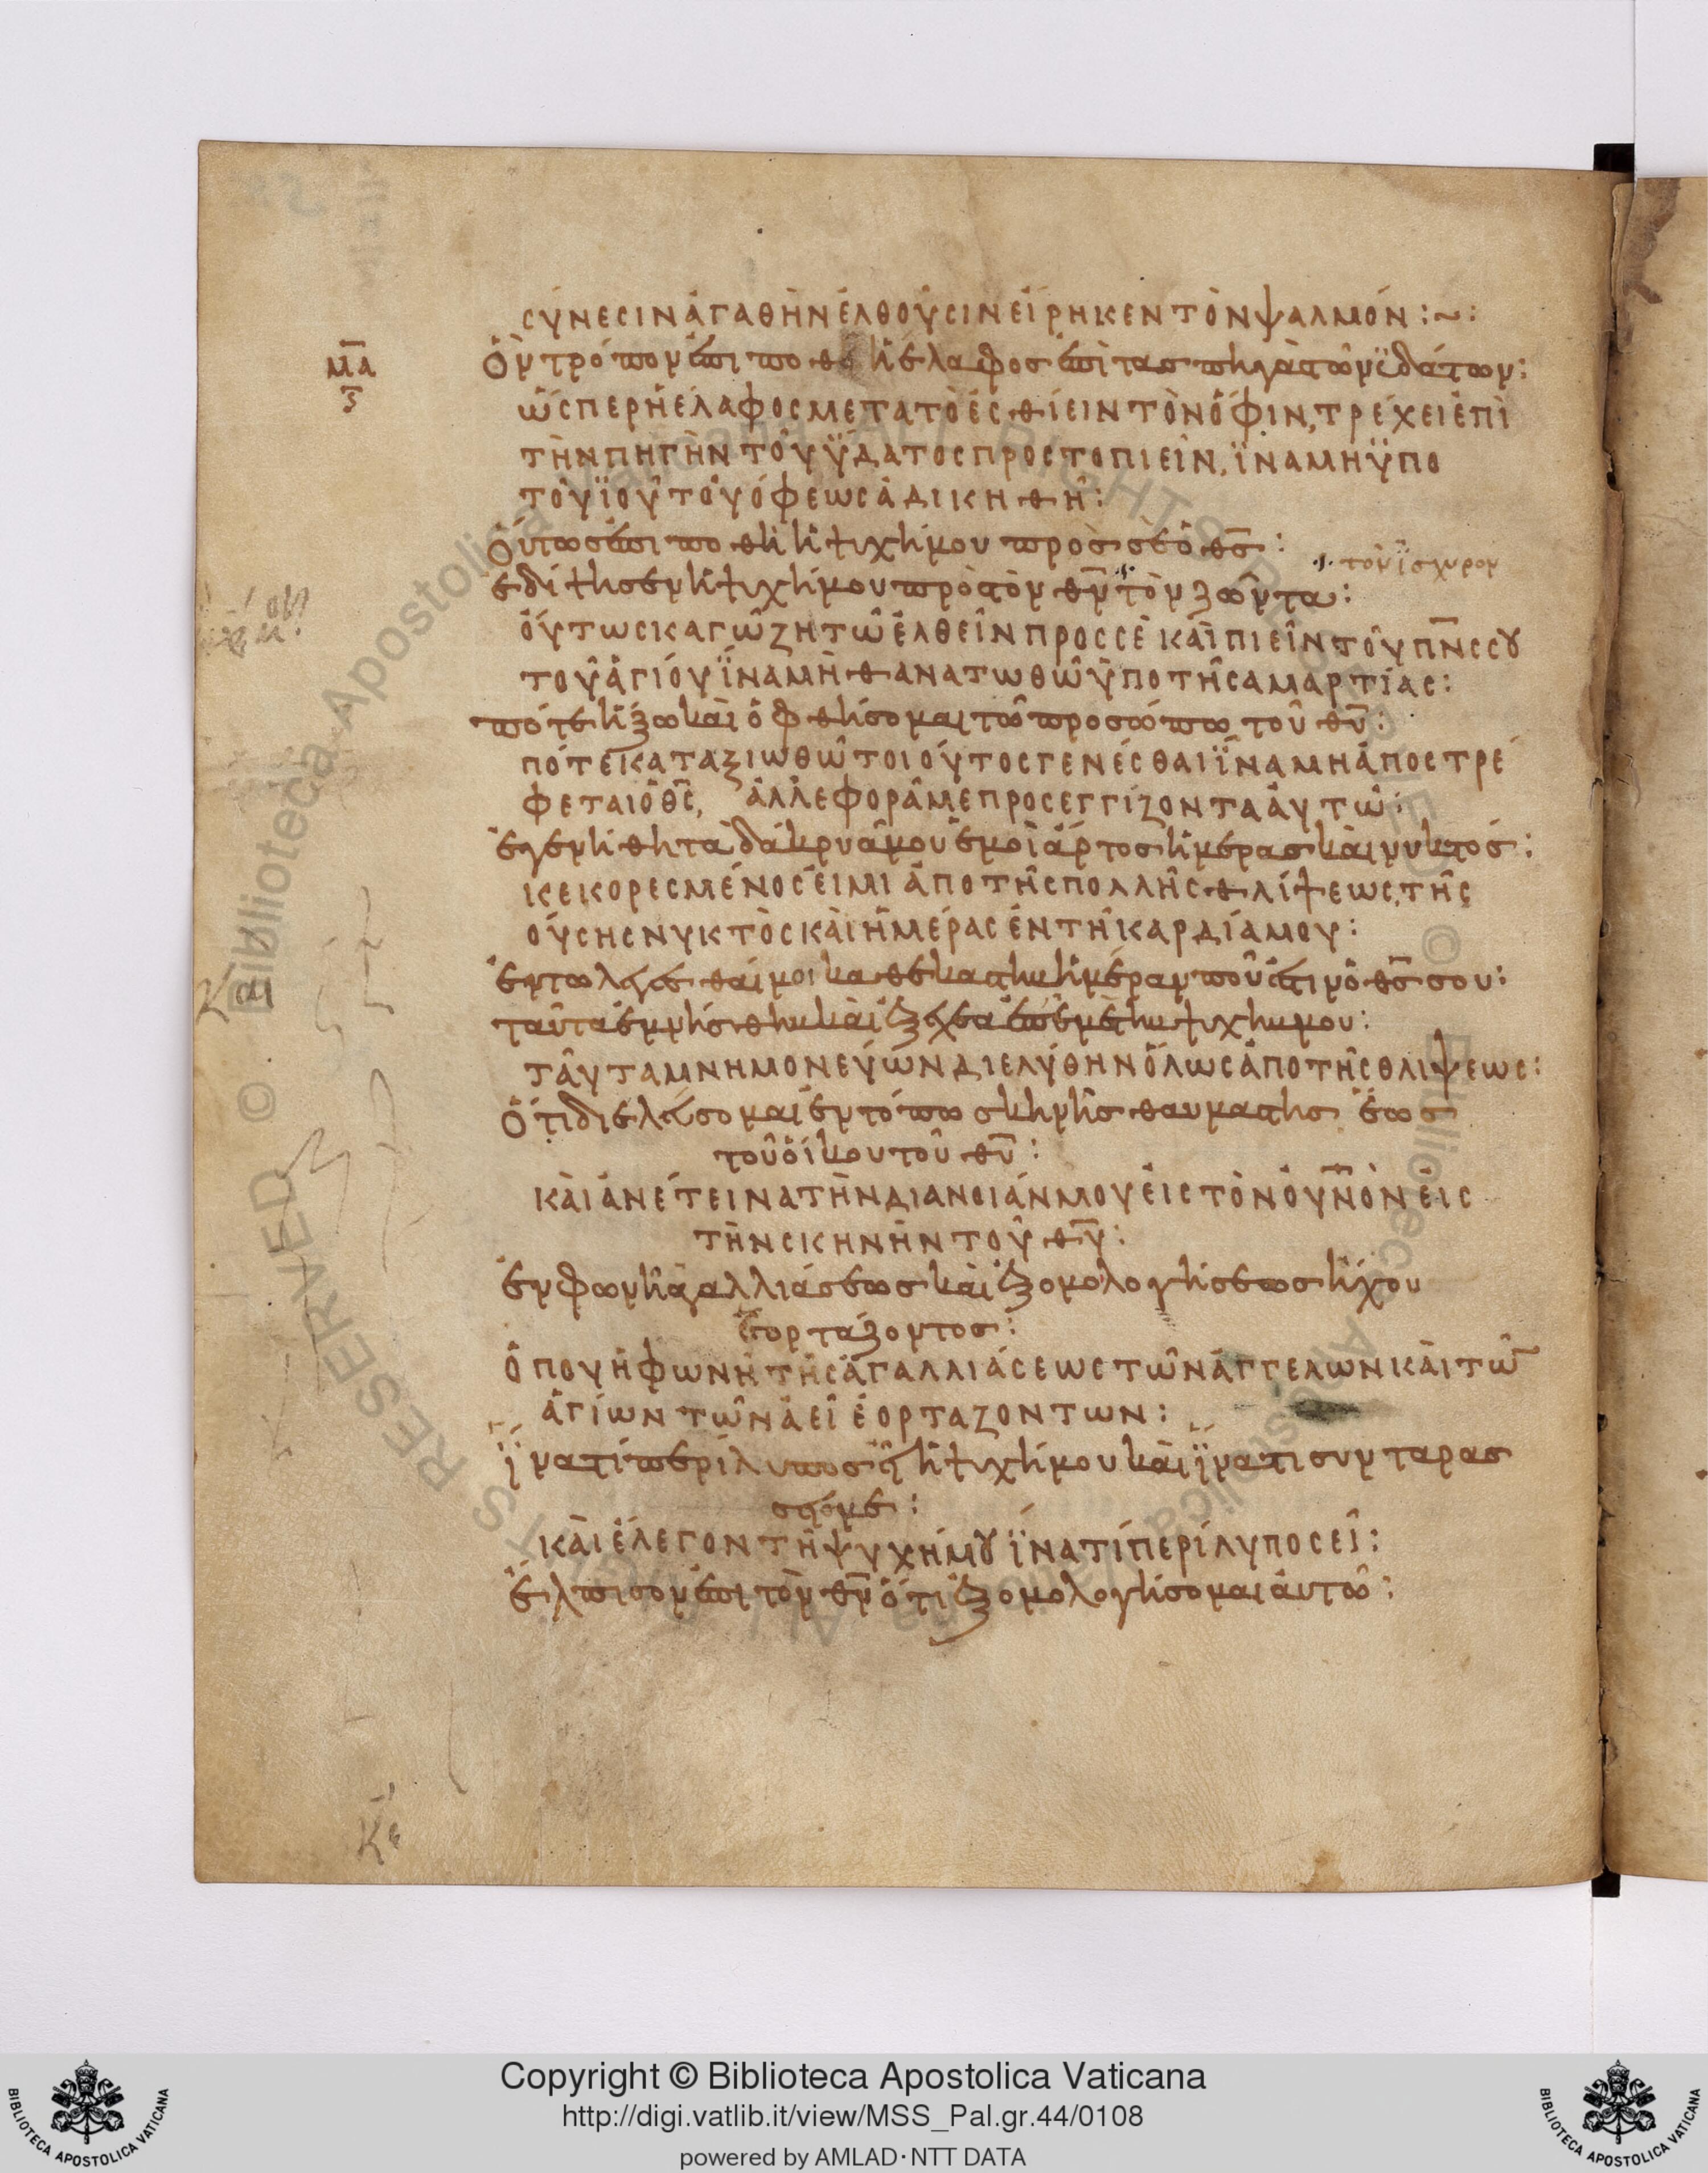 ϲύνεϲιν ἀγαθὴν ἐλθοῦϲιν εἴρηκεν τὸν ψαλμόν :~:
μ̅α̅ Ὃν τρόπον ἐπιποθεῖ ἡ ἔλαφος ἐπὶ τας πηγὰς τῶν ὑδάτων:
ὥϲπερ ἡ ἔλαφοϲ μετα τὸ ἐϲθίειν τὸν ὄφιν, τρέχει ἐπὶ
τὴν πηγὴν τοῦ ὕδατοϲ προϲ το πιεῖν, ἵνα μη ὑπο
τοῦ ἰοῦ τοῦ όφεωϲ ἀδικηθῆ:
Ούτως ἐπιποθῆ ἡ ψυχή μου πρὸς σὲ ὁ θ̅ς̅:
ἐδίψησεν ἡ ψυχή μου πρὸς τὸν θ̅ν̅ τὸν ζῶντα:
τὸν ἰσχυρον
ὁύτωϲ καγὼ ζητῶ ἐλθεῖν προϲ ϲὲ κὰι πιεῖν τοῦ π̅ν̅ϲ ϲου
τοῦ ἁγίου ἵνα μὴ θανατωθῶ ὑπο τῆϲ αμαρτίαϲ:
πότε ἥξω κὰι ὀφθήσομαι τῶ προσώπω τοῦ θ̅υ̅:
πότε καταξιωθῶ τοιούτοϲ γενέϲθαι ἵνα μη ἀποϲτρέ
φεται ὁ θ̅ϲ̅, ἀλλ' εφορᾶ με προϲεγγίζοντα ἀυτῶ:
ἐγενήθη τα δάκρυά μου ἐμοὶ ἄρτος ἡμέρας κὰι νυκτός:
κεκορεϲμένοϲ ἐιμι ἀπο τῆϲ πολλῆϲ θλίψεωϲ, τῆϲ
ούϲηϲ νυκτὸϲ κὰι ἡμέραϲ ἐν τῆ καρδία μου:
ἐν τω λέγεσθαί μοι καθ εκαστην ἡμέραν ποῦ ἐστιν ὁ θ̅ς̅ σου:
ταῦτα ἐμνήσθην κὰι ἐξέχεα ἐπ ἐμὲ την ψυχην μου:
ταῦτα μνημονεύων διελύθην ὅλωϲ ἀπο τῆϲ θλιψεωϲ:
Ὅτι διελεύσομαι ἐν τόπω σκηνῆς θαυμαστης ἕως
τοῦ οἴκου τοῦ θ̅υ̅:
κὰι ἀνέτεινα τὴν διανοιάν μου ἐιϲ τὸν ὀυ̅ν̅ὸν ἐιϲ
τὴν ϲκηνὴν τοῦ θ̅υ̅:
ἐν φωνῆ ἀγαλλιάσεως κὰι ἐξομολογήσεως ἤχου
ἑορτάζοντος:
ὅπου ἡ φωνὴ τῆϲ ἀγαλλιάϲεωϲ τῶν ἀγγελων κὰι τῶ̅
ἁγίων τῶν ἀεὶ ἑορταζοντων:
ἵνα τί περίλυπος εἶ ἡ ψυχή μου κὰι ἵνα τι συνταρας
σεις με:
κὰι ἔλεγον τῆ ψυχή μου ἵνα τί περίλυποϲ εἶ:
ἔλπισον ἐπι τὸν θ̅ν̅ ὅτι ἐξομολογήσομαι ἀυτῶ:
Κ̅αι
Κε
Copyright © Biblioteca Apostolica Vaticana
http://digi.vatlib.it/view/MSS_Pal.gr.44/0108
powered by AMLAD·NTT DATA
BIBLIOTECA APOSTOLICA VATICANA
BIBLIOTECA APOSTOLICA VATICANA